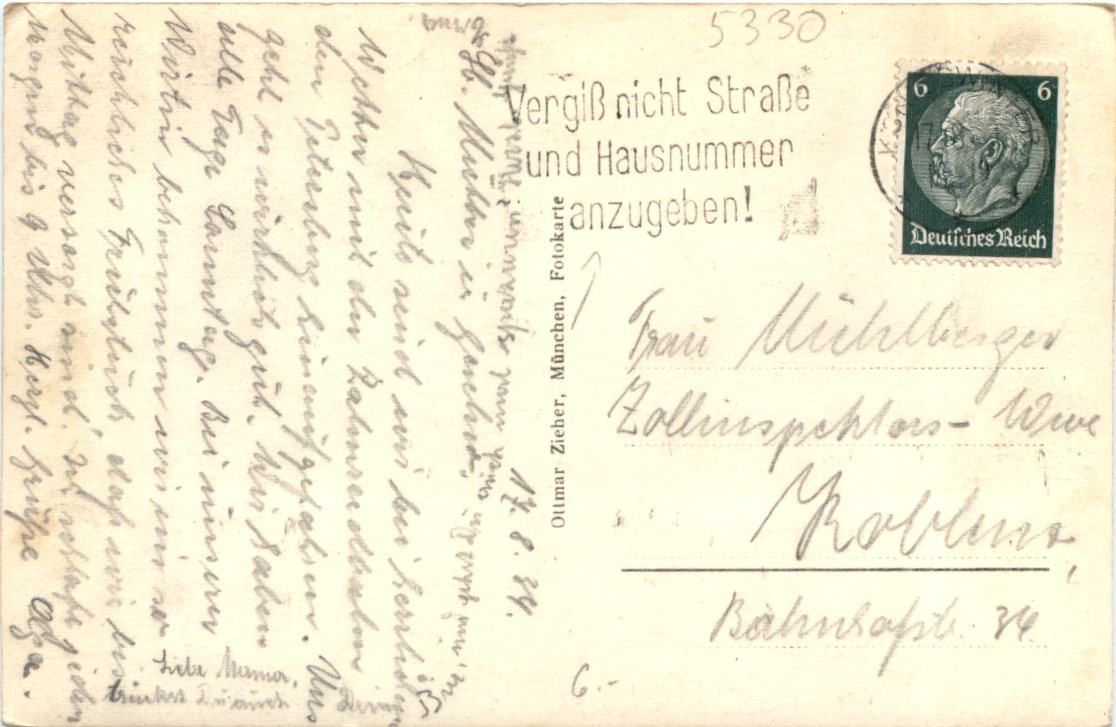 5330
Vergiß nicht Straße
und Hausnummer
anzugeben!
6 6
Deutsches Reich
Ottmar Zieher, München, Fotokarte
Frau Mühlberger
Zollinspektors- Wwe
Koblenz,
Bahnhofstr. 34
6.-
17. 8. 34.
Lb. Mutter u. Geschw.
Heute sind wir bei herrlichem
Wetter mit der Zahnradbahn
den Petersberg hinaufgefahren. Uns
geht es wirklich gut. Wir haben
alle Tage Sonntag. Bei unserer
Wirtin bekommen wir immer
reichliches Frühstück, daß wir bis
Mittag versorgt sind. Ich schlafe jeden
Morgen bis 9 Uhr. Herzl. Grüße
Liebe Mama,
trinkst Du auch